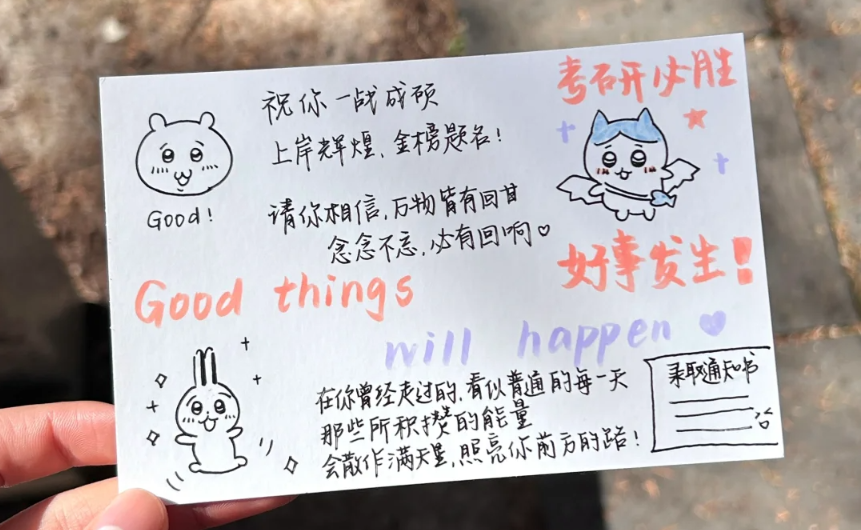 考研必胜
祝你一战成硕
上岸辉煌、金榜题名!
Good!
请你相信,万物皆有回甘
念念不忘,必有回响♡
好事发生!
Good things
will happen
在你曾经走过的,看似普通的每一天
那些所积攒的能量
会散作满天星,照亮你前方的路!
录取通知书